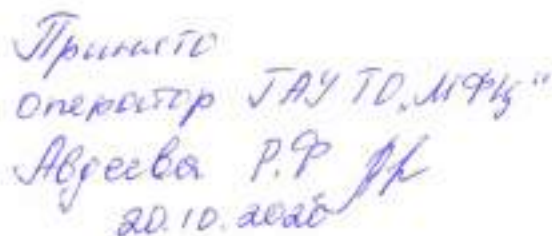 Принято
оператор ГАУ ТО „МФЦ"
Авдеева Р.Ф
20.10.2020